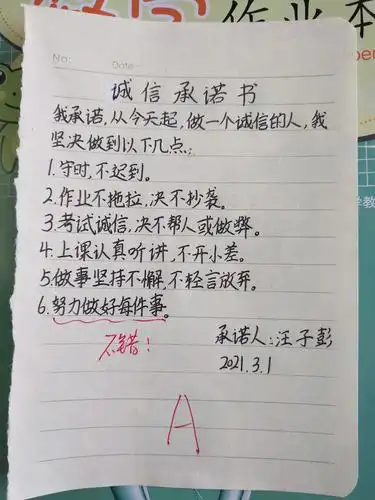 作业本
No:
Date
诚信承诺书
我承诺,从今天起,做一个诚信的人,我
坚决做到以下几点:
1.守时,不迟到。
2.作业不拖拉,决不抄袭。
3.考试诚信,决不帮人或做弊。
4.上课认真听讲,不开小差。
5.做事坚持不懈,不轻言放弃。
6.努力做好每件事。
不错!
承诺人:汪子彭
2021.3.1
A